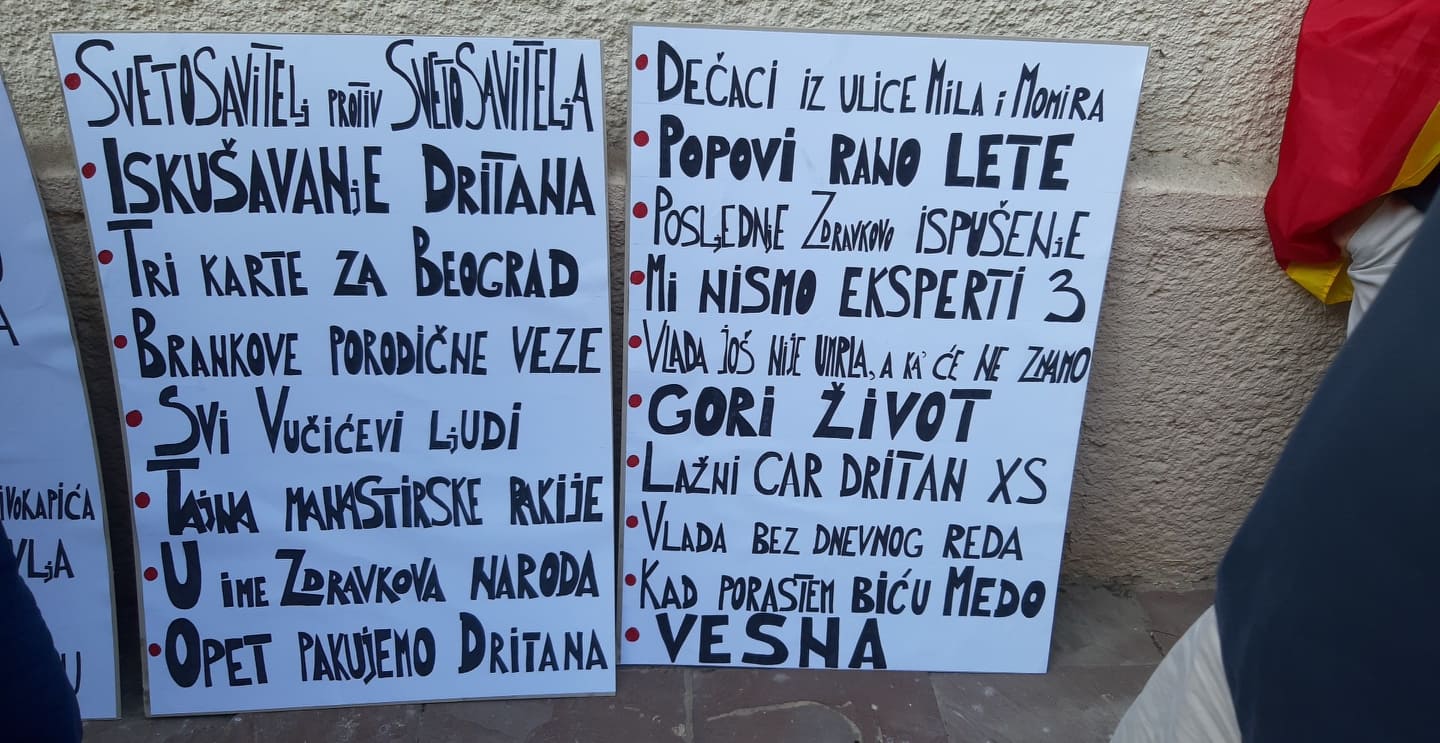 IVOKAPIĆA
VLJA
U
SVETOSAVITELJ PROTIV SVETOSAVITELJA
ISKUŠAVANJE DRITANA
TRI KARTE ZA BEOGRAD
BRANKOVE PORODIČNE VEZE
SVI VUČIĆEVI LJUDI
TAJNA MANASTIRSKE RAKIJE
U IME ZDRAVKOVA NARODA
OPET PAKUJEMO DRITANA
DEČACI IZ ULICE MILA I MOMIRA
POPOVI RANO LETE
POSLJEDNJE ZDRAVKOVO ISPUŠENJE
MI NISMO EKSPERTI 3
VLADA JOŠ NIJE UMRLA, A KA' ĆE NE ZNAMO
GORI ŽIVOT
LAŽNI CAR DRITAN XS
VLADA BEZ DNEVNOG REDA
KAD PORASTEM BIĆU MEDO
VESNA